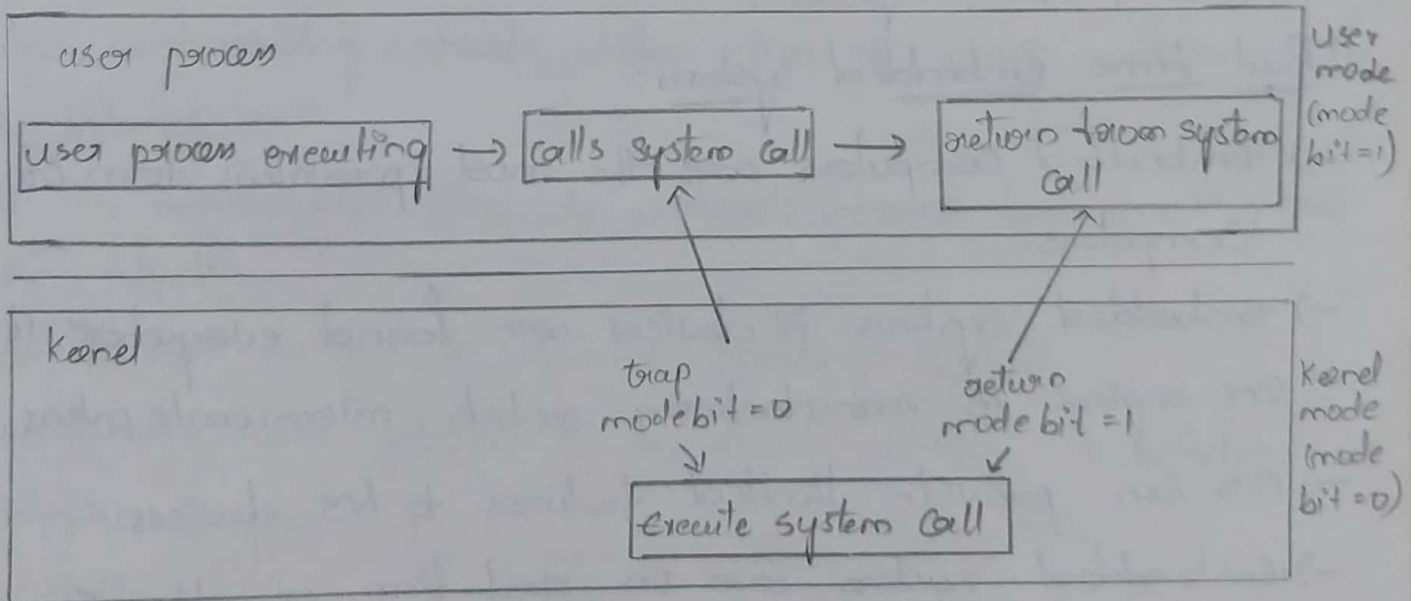 user process
user process executing → calls system call → return from system
call
user
mode
(mode
bit=1)
Kernel
trap
modebit=0
return
mode bit=1
execute system call
Kernel
mode
(mode
bit=0)